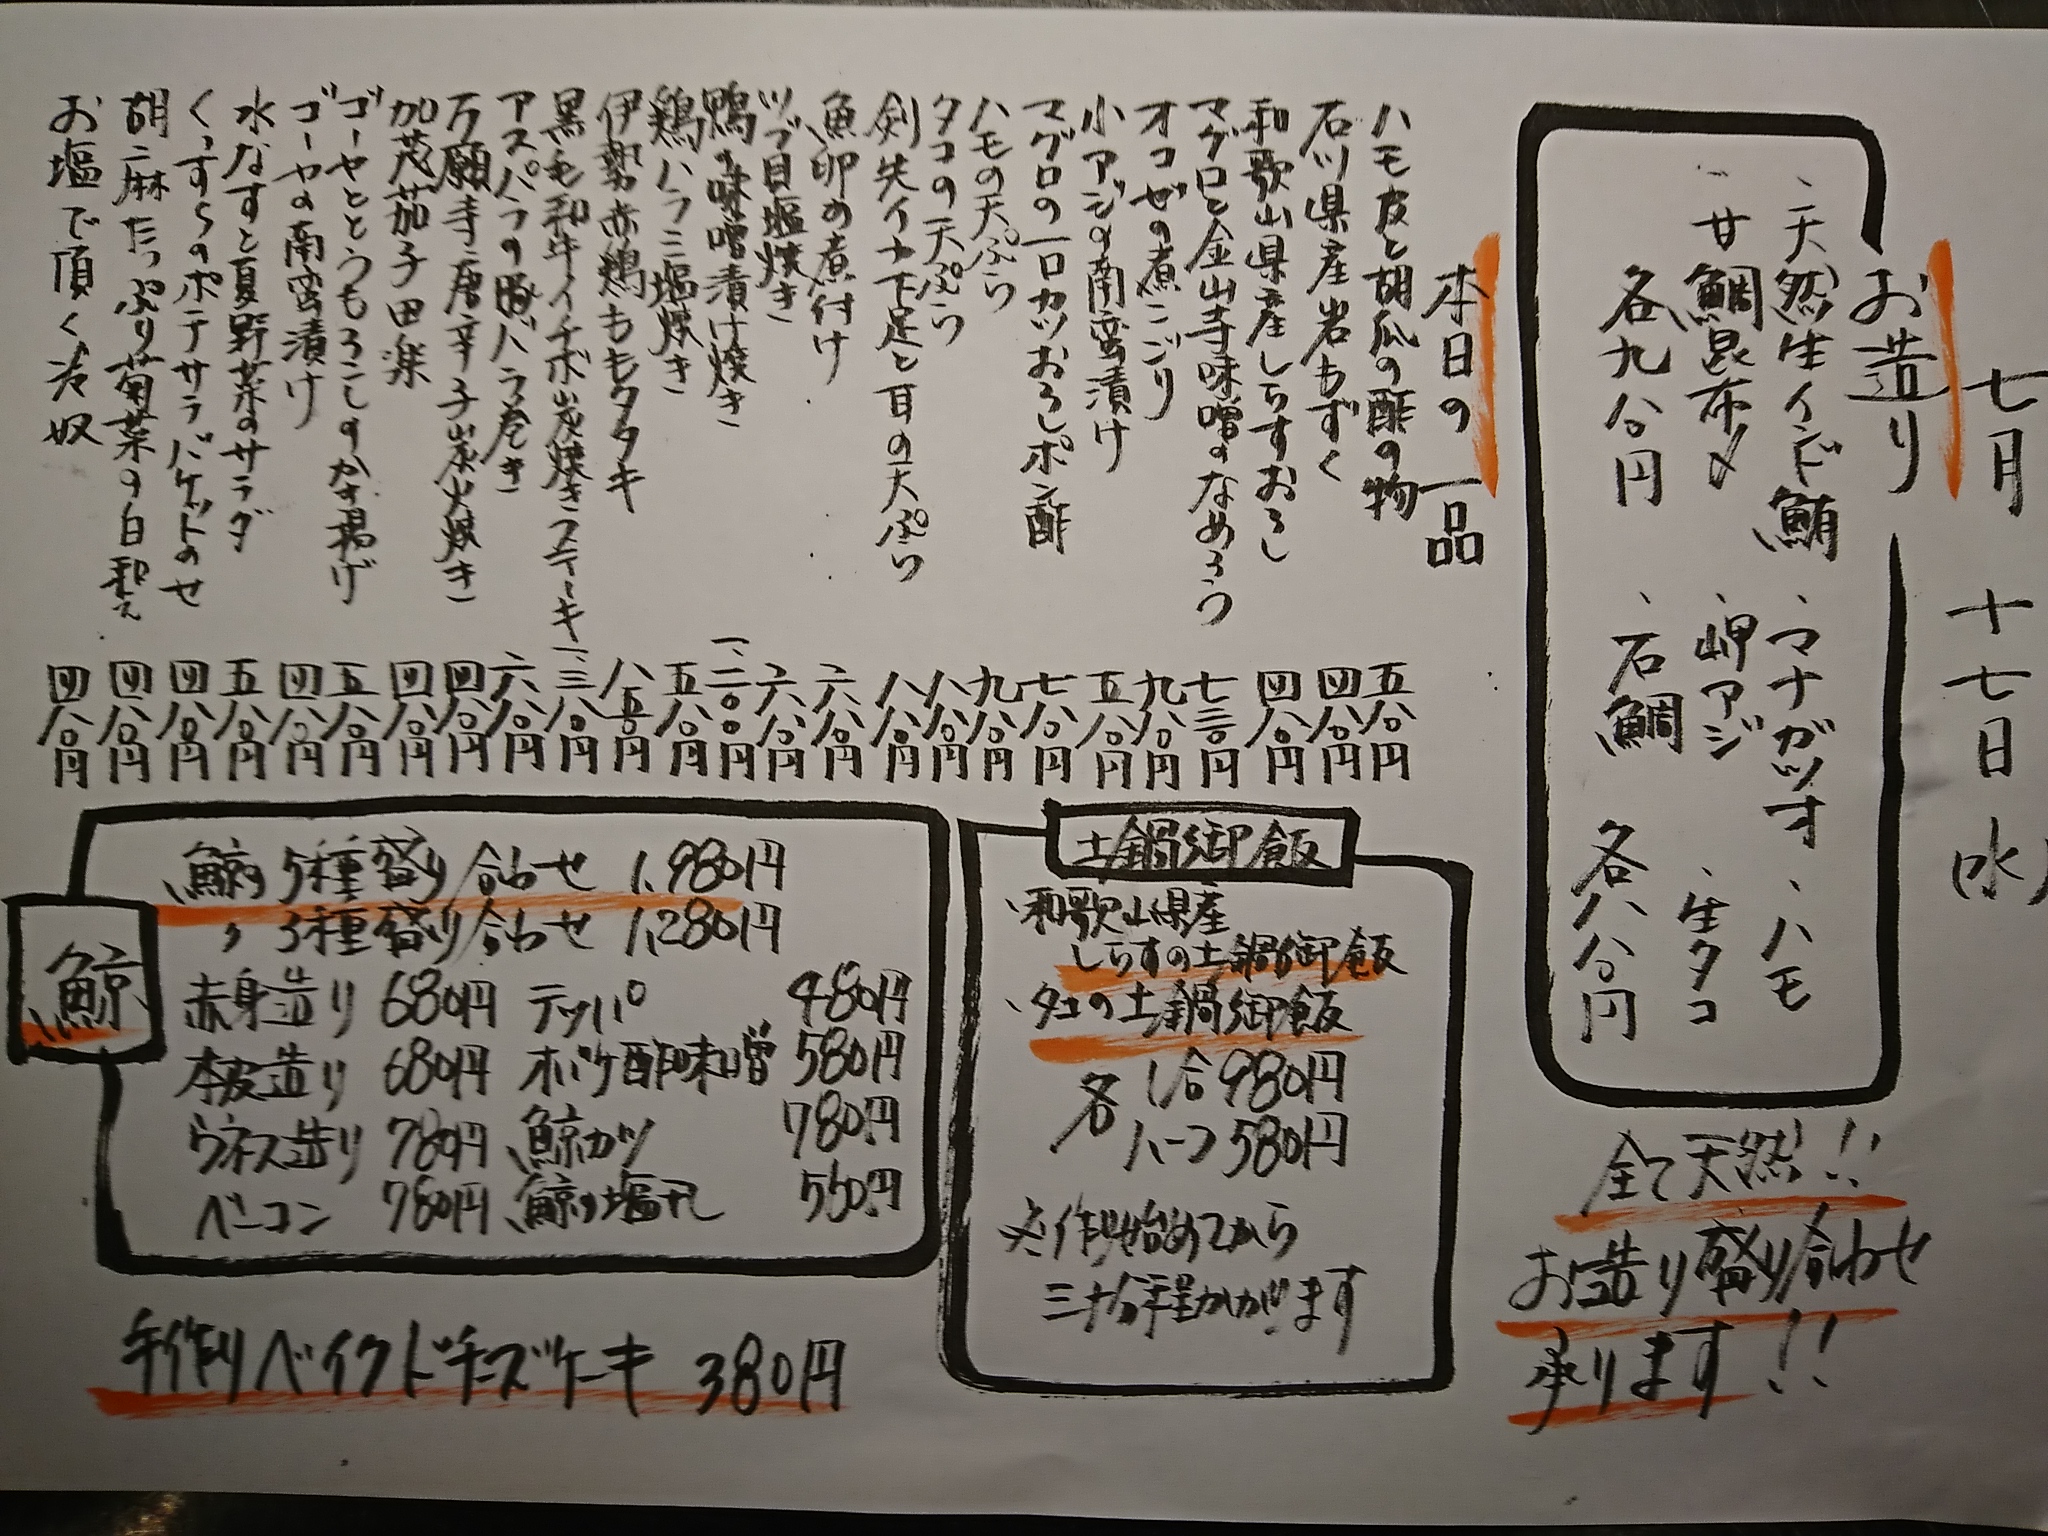 七月 十七日 (水)
お造り
、天然生インド鮪 、マナガツオ 、ハモ
、甘鯛昆布〆 、岬アジ 、生タコ
各九八〇円 、石鯛 各八八〇円
全て天然!!
お造り盛り合わせ
承ります!!
本日の一品
ハモ皮と胡瓜の酢の物 五八〇円
石川県産岩もずく 四八〇円
和歌山県産しらすおろし 四八〇円
マグロと金山寺味噌のなめろう 七三〇円
オコゼの煮こごり 九八〇円
小アジの南蛮漬け 五八〇円
マグロの一口カツおろしポン酢 七八〇円
ハモの天ぷら 九八〇円
タコの天ぷら 八八〇円
剣先イカ下足と耳の天ぷら 八八〇円
魚卵の煮付け 六八〇円
ツブ貝塩焼き 六八〇円
鴨の味噌漬け焼き 一、二〇〇円
鶏ハラミ塩焼き 五八〇円
伊勢赤鶏ももタタキ 八五〇円
黒毛和牛イチボ炭焼きステーキ 一、三八〇円
アスパラの豚バラ巻き 六八〇円
万願寺唐辛子炭火焼き 四八〇円
加茂茄子田楽 四八〇円
ゴーヤととうもろこしのかき揚げ 五八〇円
ゴーヤの南蛮漬け 四八〇円
水なすと夏野菜のサラダ 五八〇円
くっすらのポテサラバケットのせ 四八〇円
胡麻たっぷり菊菜の白和え 四八〇円
お塩で頂く冷奴 四八〇円
土鍋御飯
、和歌山県産
しらすの土鍋御飯
、タコの土鍋御飯
各 1合980円
ハーフ580円
※作り始めてから
三十分程かかります
鯨
鯨の5種盛り合わせ 1,980円
〃 3種盛り合わせ 1,280円
赤身造り 680円 テッパ 480円
本皮造り 680円 オバケ酢味噌 580円
ウネス造り 780円 鯨カツ 780円
ベーコン 780円 鯨の塩干し 550円
手作りベイクドチーズケーキ 380円